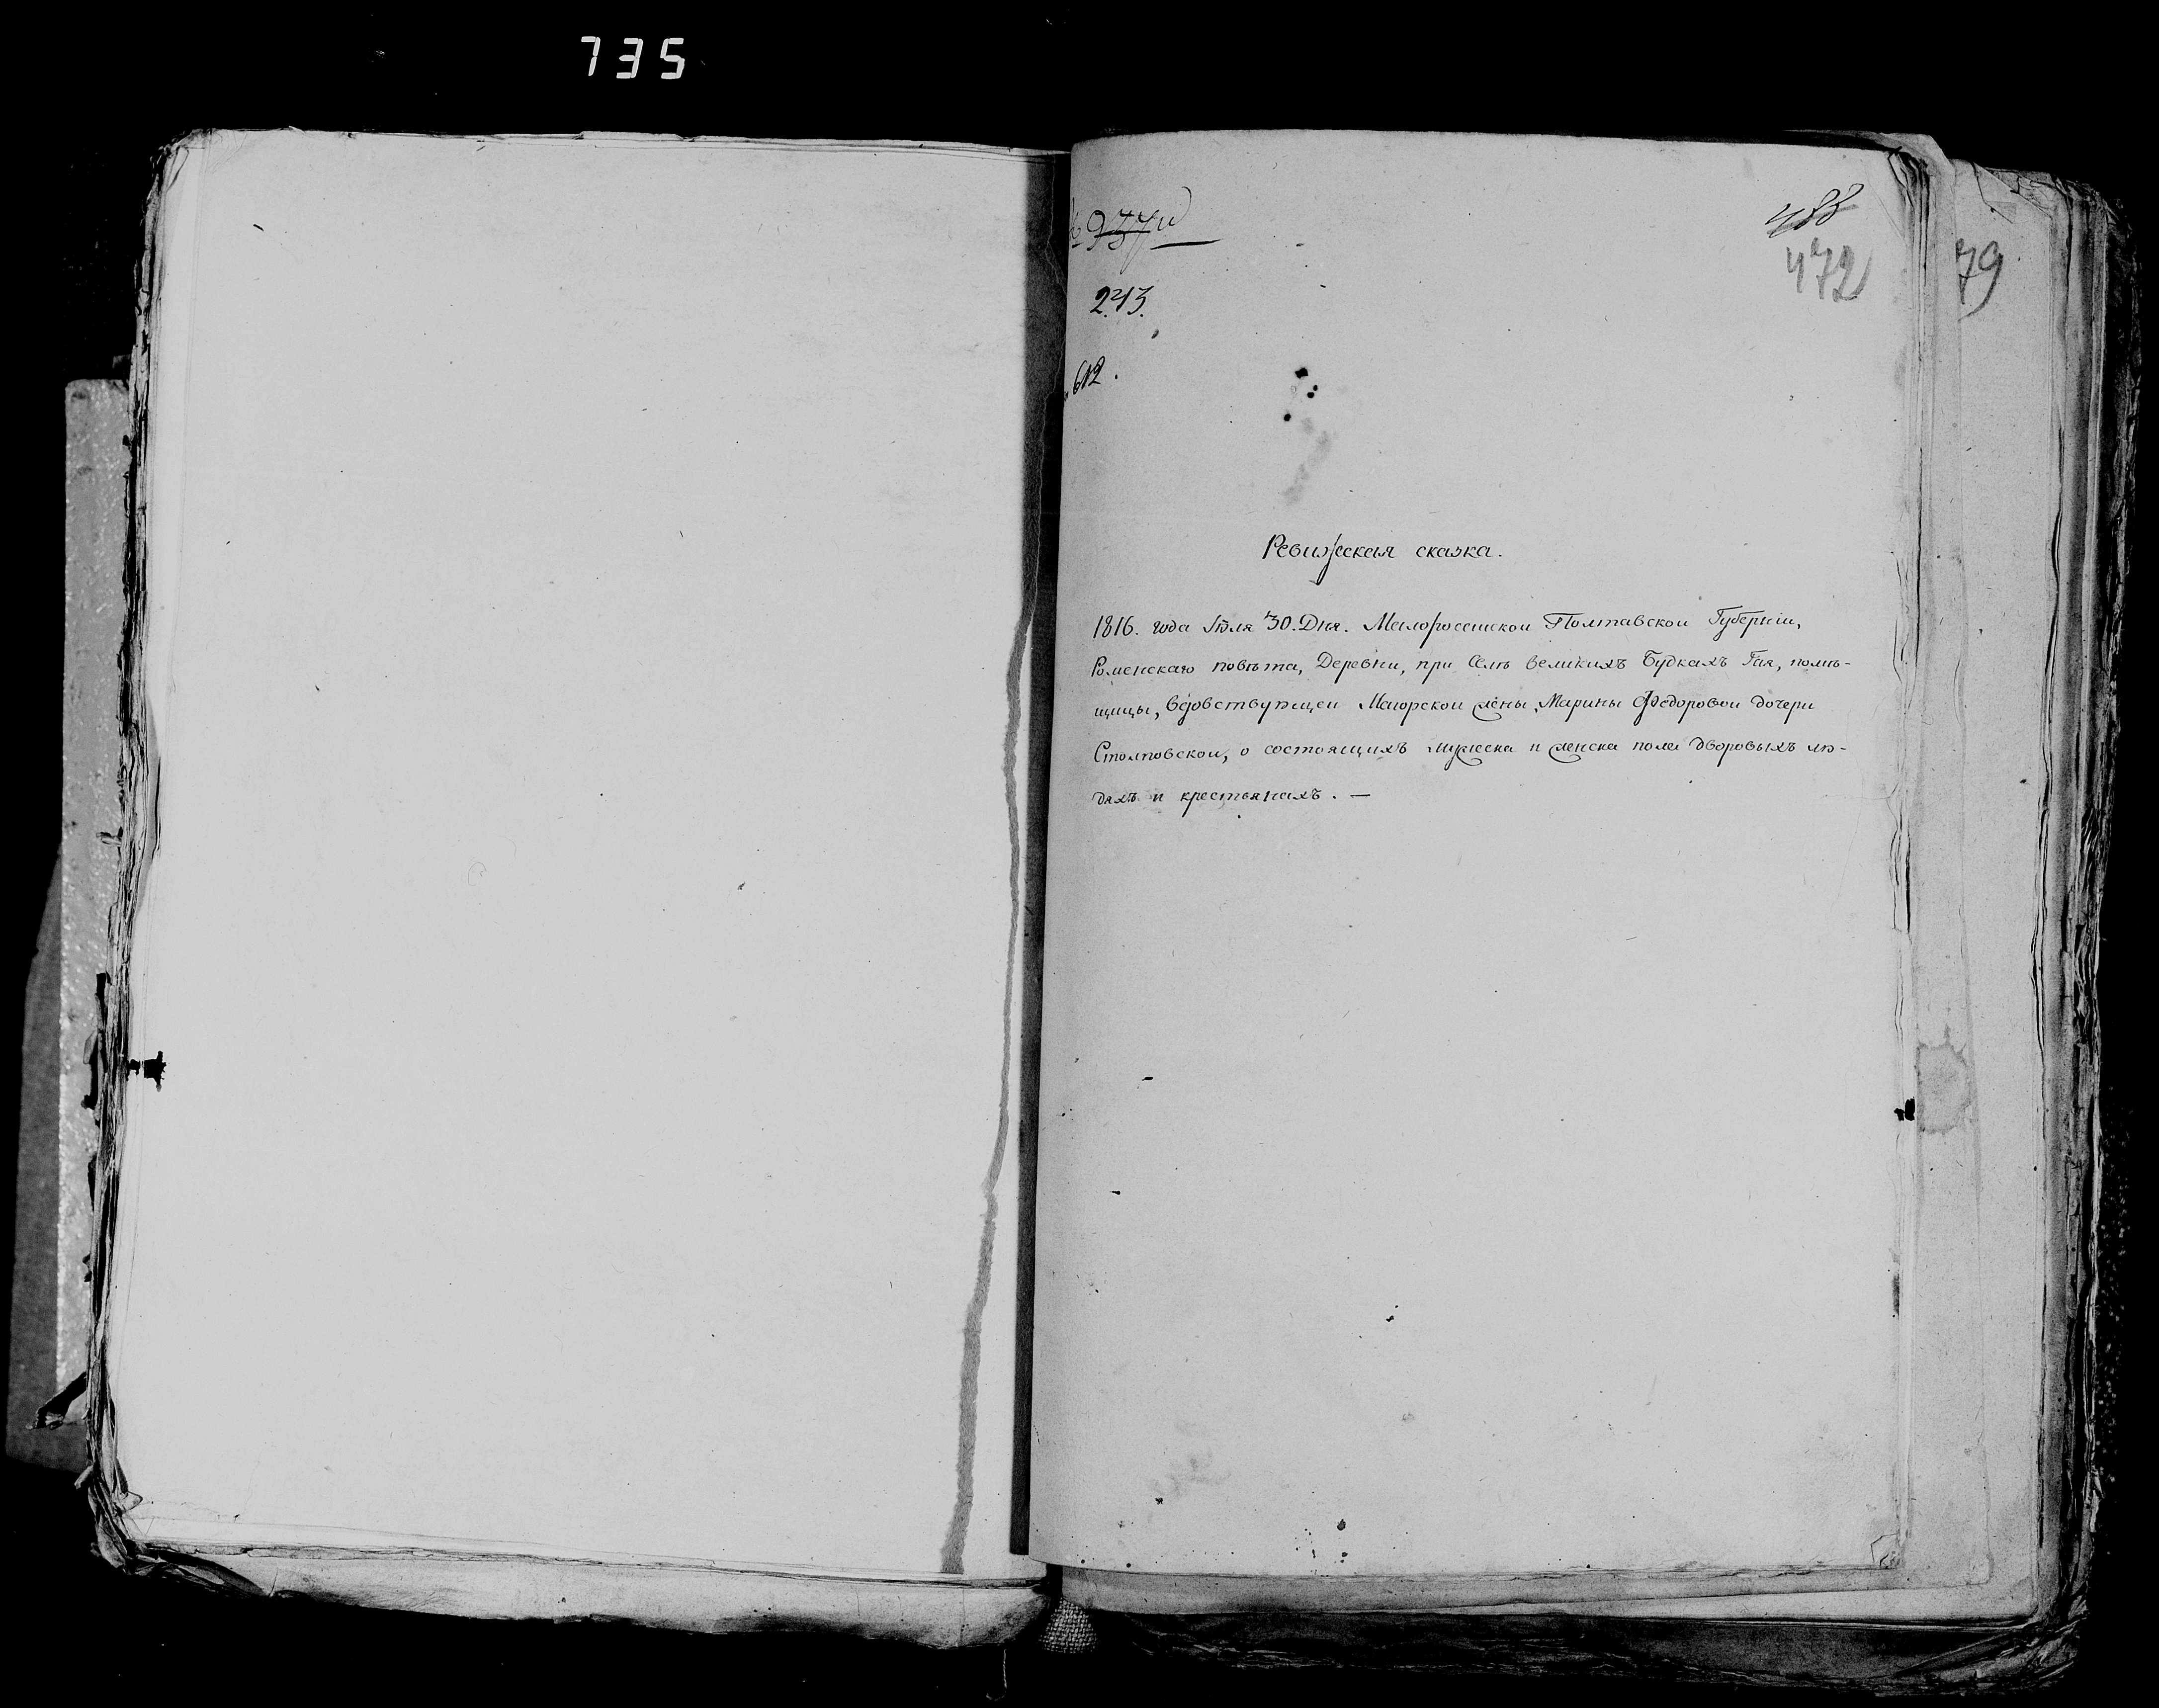 735
488
472
79
243.
612.
Ревизская сказка.
1816. года Июля 30. Дня. Малоросспіской Полтавской Губерніи,
Роменскаго повѣта, Деревни, при Селѣ великихъ Будкахъ Гая, помѣ-
щицы, вдовствующеи Маиорской жены, Марины Федоровои дочери
Столповской, о состоящихъ мужеска и женска пола дворовыхъ лю-
дяхъ и крестьянахъ. —